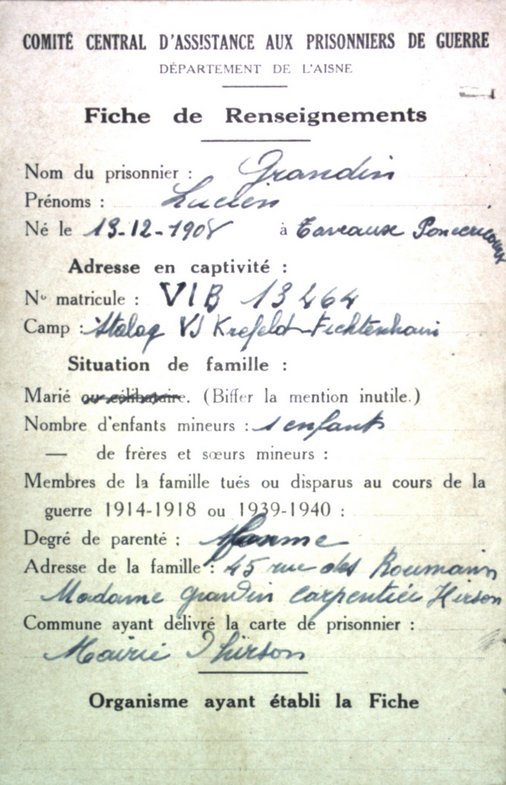 COMITÉ CENTRAL D'ASSISTANCE AUX PRISONNIERS DE GUERRE
DÉPARTEMENT DE L'AISNE
Fiche de Renseignements
Nom du prisonnier : Grandin
Prénoms : Lucien
Né le 13-12-1908 à Taveaux Pontséricourt
Adresse en captivité :
No matricule : VIB 13464
Camp : Stalag VJ Krefeld-Fichtenhain
Situation de famille :
Marié ou célibataire. (Biffer la mention inutile.)
Nombre d'enfants mineurs : 1 enfant
— de frères et sœurs mineurs :
Membres de la famille tués ou disparus au cours de la
guerre 1914-1918 ou 1939-1940 :
Degré de parenté : femme
Adresse de la famille : 45 rue des Roumains
Madame Grandin Carpentier Hirson
Commune ayant délivré la carte de prisonnier :
Mairie d'hirson
Organisme ayant établi la Fiche